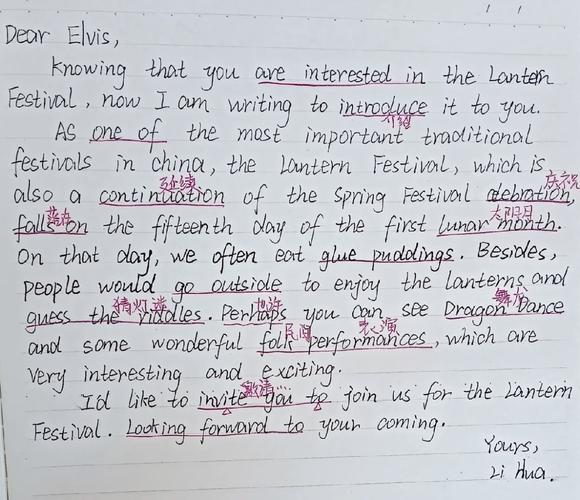 Dear Elvis,
Knowing that you are interested in the Lantern
Festival, now I am writing to introduce it to you.
介绍
As one of the most important traditional
festivals in China, the Lantern Festival, which is
延续 庆祝
also a continuation of the Spring Festival celebration,
落在 太阴月
falls on the fifteenth day of the first lunar month.
On that day, we often eat glue puddings. Besides,
people would go outside to enjoy the lanterns and
猜灯谜 也许 舞龙
guess the riddles. Perhaps you can see Dragon Dance
民间 表演
and some wonderful folk performances, which are
very interesting and exciting.
邀请
I'd like to invite you to join us for the Lantern
Festival. Looking forward to your coming.
Yours,
Li Hua.